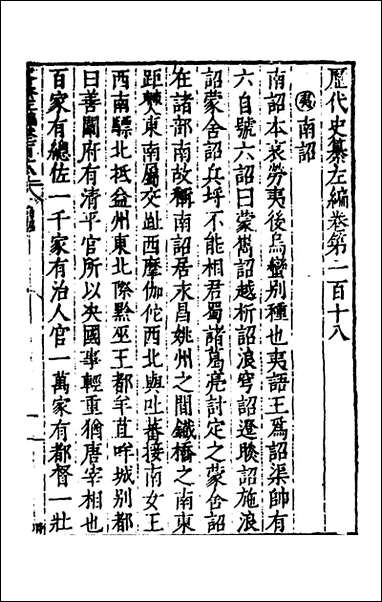 歷代史纂左編卷第一百十八
夷 南詔
南詔本哀勞夷後烏蠻別種也夷語王爲詔渠帥有
六自號六詔曰蒙雋詔越析詔浪穹詔邆睒詔施浪
詔蒙舍詔兵埒不能相君蜀諸葛亮討定之蒙舍詔
在諸部南故稱南詔居永昌姚州之間鐵橋之南東
距爨東南屬交趾西摩伽佗西北與吐蕃接南女王
西南驃北抵益州東北際黔巫王都羊苴咩城別都
曰善闡府有清平官所以夬國事輕重猶唐宰相也
百家有總佐一千家有治人官一萬家有都督一壯